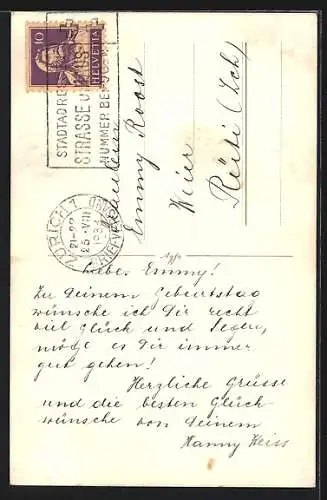 10
HELVETIA
STADTADRE
STRASSE U
NUMMER BE
ZÜRICH 1
21-22
25.VIII
193
BRIEFVERS
Fräulein
Emmy Roost
Weier
Rüti (Zch)
Liebes Emmy!
Zu Deinem Geburtstag
wünsche ich Dir recht
viel Glück und Segen,
möge es Dir immer
gut gehen!
Herzliche Grüsse
und die besten Glück-
wünsche von Deinem
Hanny Weiss